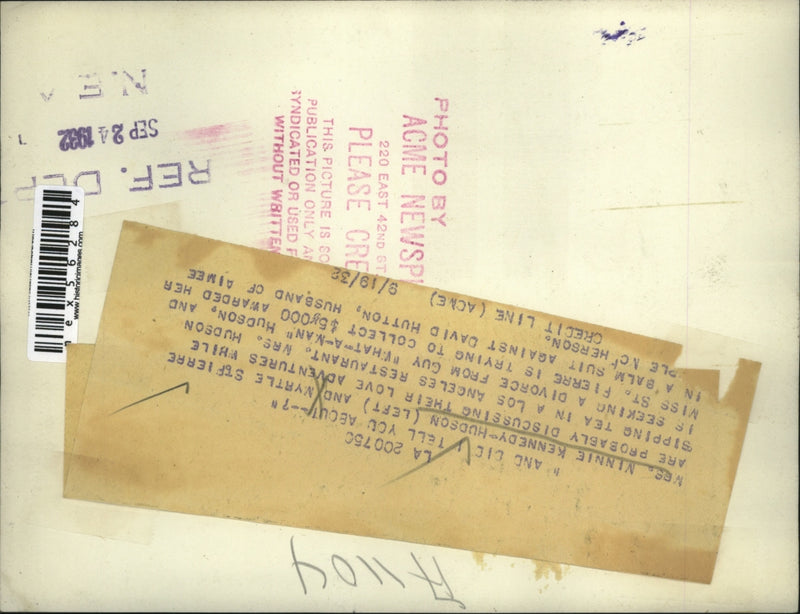 LA 200750
" AND DID I TELL YOU ABOUT--?"
MRS. MINNIE KENNEDY-HUDSON (LEFT) AND MYRTLE ST. PIERRE
ARE PROBABLY DISCUSSING THEIR LOVE ADVENTURES WHILE
SIPPING TEA IN A LOS ANGELES RESTAURANT. MRS. HUDSON
IS SEEKING A DIVORCE FROM GUY "WHAT-A-MAN" HUDSON, AND
MISS ST. PIERRE IS TRYING TO COLLECT $5,000 AWARDED HER
IN A BALM SUIT AGAINST DAVID HUTTON, HUSBAND OF AIMEE
PLE MCPHERSON.
CREDIT LINE (ACME) 9/19/32
PHOTO BY
ACME NEWSP
220 EAST 42ND ST
PLEASE CRE
THIS PICTURE IS SO
PUBLICATION ONLY AN
SYNDICATED OR USED F
WITHOUT WRITTEN
N.E.A
SEP 24 1932
REF. DEP
nex56284
A1104